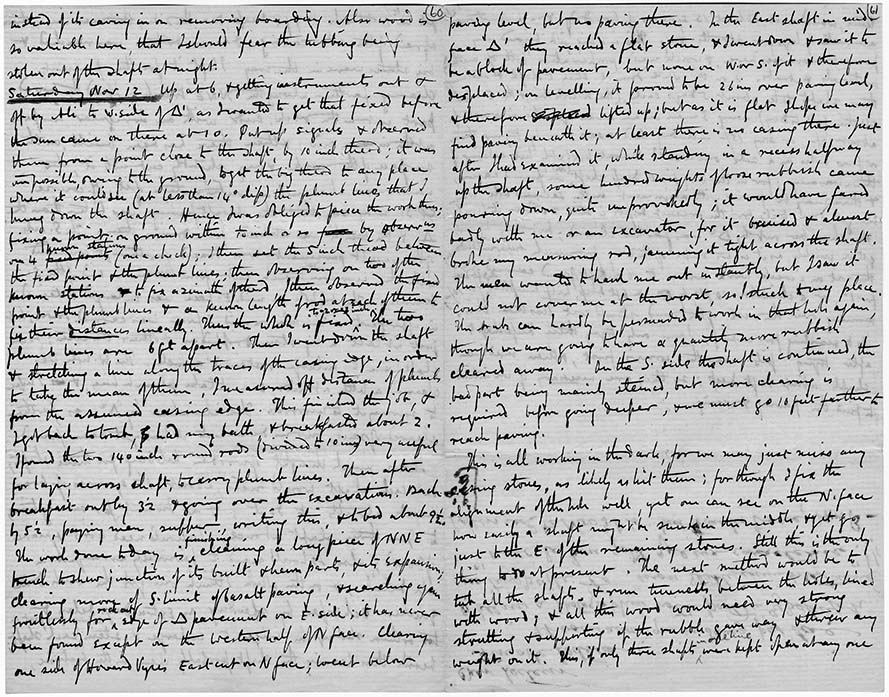 60
instead of its caving in on removing boarding. Also wood is
so valuable here that I should fear the tubbing being
stolen out of the shaft at night.
Saturday Nov 12 Up at 6, & getting instruments out &
off by Ali to W. side of Δ, as I wanted to get that fixed before
the sun came on there at 10. Put up signals & observed
them from a point close to the shaft, by 10 inch theod; it was
impossible, owing to the ground, to get the big theod to any place
where it could see (at less than 14° dip) the plumb lines that I
hung down the shaft. Hence I was obliged to piece the work thus;
fixing a point on ground within inch or so by observns
on 4 known stations (one a check); then set the 5 inch theod between
the fixed point & the plumb lines, then observing on two of the
known stations to fix azimuth of theod I then observed the fixed
point & the plumb lines & a known length of rod at each of them to
fix their distances lineally. Then the whole is fixed. The two
plumb lines are 6 ft apart. Then I went down the shaft
& stretching a line along the traces of the casing edge, in order
to take the mean of them, I measured off distances of plumbs
from the assumed casing edge. This finished the job, &
I got back to tomb, had my bath & breakfasted about 2.
I found the two 140 inch round rods (divided to 10 ins) very useful
for laying across shaft to carry plumb lines. Then after
breakfast out by 3½ & going over the excavations. Back
by 5½, paying men, supper, writing this, & to bed about
The work done today is finishing clearing a long piece of NNE
trench to shew junction of its built & hewn parts, & its expansion,
clearing more of S. limit of basalt paving, & searching again
fruitlessly for edge of Δ pavement on E. side; it has never
been found except on the western half of N face. Clearing
one side of Howard Vyse's East cut on N face; went below
61
paving level, but no paving there. In the East shaft in mid
face Δ they reached a flat stone, & I went down & saw it to
be a block of pavement, but none on W or S. of it & therefore
displaced; on levelling, it proved to be 26 ins over paving level,
& therefore lifted up; but as it is flat I hope we may
find paving beneath it; at least there is no casing there. Just
after I had examined it while standing in a recess halfway
up the shaft, some hundredweights of loose rubbish came
pouring down, quite unprovokedly; it would have fared
badly with me or an excavator, for it bruised & almost
broke my measuring rod, jamming it tight across the shaft.
The men wanted to haul me out instantly, but I saw it
could not cover me at the worst, so I stuck to my place.
The Arabs can hardly be persuaded to work in that hole again,
though we are going to have a quantity more rubbish
cleared away. In the S. side the shaft is continued, the
bad part being mainly stemmed, but more clearing is
required before going deeper, & we must go 10 feet further to
reach paving.
This is all working in the dark, for we may just miss any
casing stones, as likely as hit them; for though I fix the
alignment of the hole well, yet one can see on the N. face
how easily a shaft might be sunk in the middle, & yet go
just to the E. of the remaining stones. Still this is the only
thing to do at present. The next method would be to
tub all the shafts, & run tunnels between the holes, lined
with wood; & all this wood would need very strong
strutting & supporting if the rubble gave way & threw any
weight on it. Thus, if only three shafts were kept open at any one